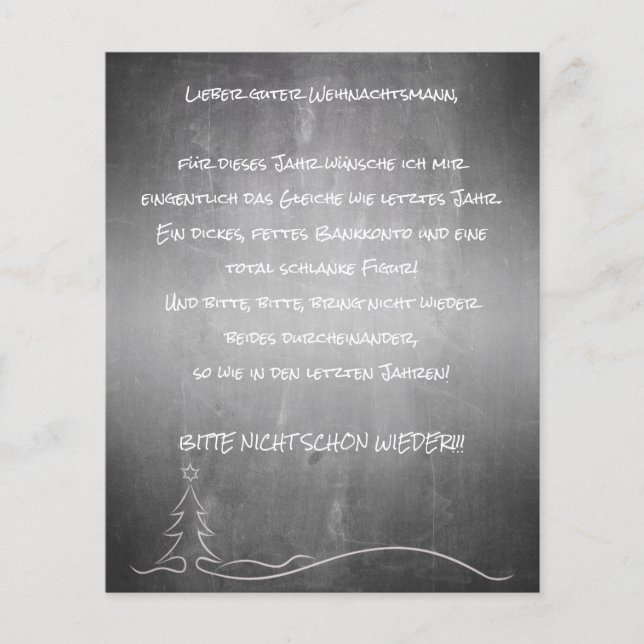 Lieber guter Weihnachtsmann,
für dieses Jahr wünsche ich mir
eingentlich das Gleiche wie letztes Jahr
Ein dickes, fettes Bankkonto und eine
total schlanke Figur!
Und bitte, bitte, bring nicht wieder
beides durcheinander,
so wie in den letzten Jahren!
BITTE NICHT SCHON WIEDER!!!